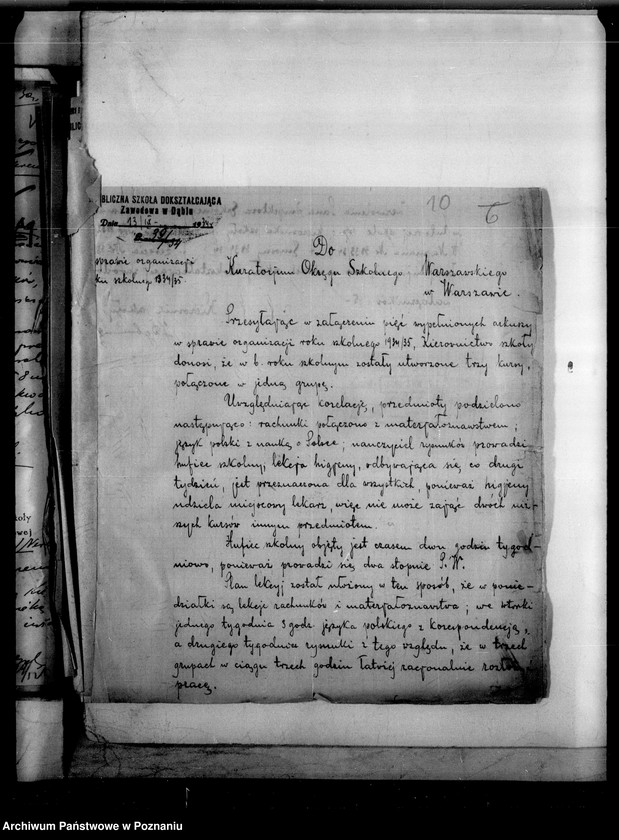 10
6
BLICZNA SZKOŁA DOKSZTAŁCAJĄCA
Zawodowa w Dąbiu
Dnia 13/IX 1934
sprawie organizacji
ku szkolnego 1934/35
Do
Kuratorjum Okręgu Szkolnego Warszawskiego
w Warszawie.
Przesyłając w załączeniu pięć wypełnionych arkuszy
w sprawie organizacji roku szkolnego 1934/35, Kierownictwo szkoły
donosi, że w b. roku szkolnym zostały utworzone trzy kursy,
połączone w jedną grupę.
Uwzględniając korelację, przedmioty podzielono
następująco: rachunki połączono z materjałoznawstwem;
język polski z nauką o Polsce; nauczyciel rysunków prowadzi
hufiec szkolny, lekcja higjeny, odbywająca się co drugi
tydzień, jest przeznaczona dla wszystkich, ponieważ higjeny
udziela miejscowy lekarz, więc nie może zająć dwóch niż-
szych kursów innym przedmiotem.
Hufiec szkolny objęty jest czasem dwu godzin tygod-
niowo, ponieważ prowadzi się dwa stopnie P. W.
Plan lekcyj został ułożony w ten sposób, że w ponie-
działki są lekcje rachunków i materjałoznawstwa; we wtorki
jednego tygodnia 3 godz. języka polskiego z korespondencją,
a drugiego tygodnia rysunki z tego względu, że w trzech
grupach w ciągu trzech godzin łatwiej racjonalnie rozłoż
pracę.
Archiwum Państwowe w Poznaniu